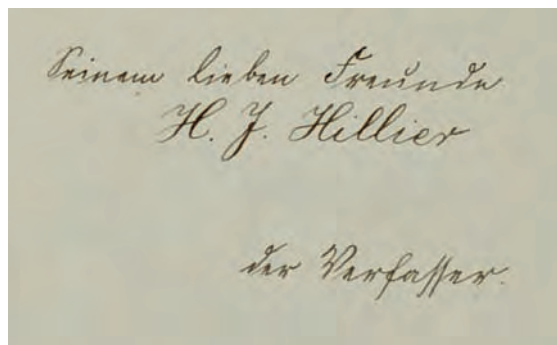 Seinem lieben Freunde
H. J. Hillier
der Verfasser.